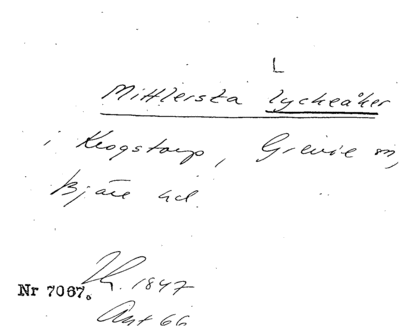 L
Mittlersta lyckeåker
i Krogstorp, Grevie sn,
Bjäre hd.
Nr 7067. 1847
Ant 66